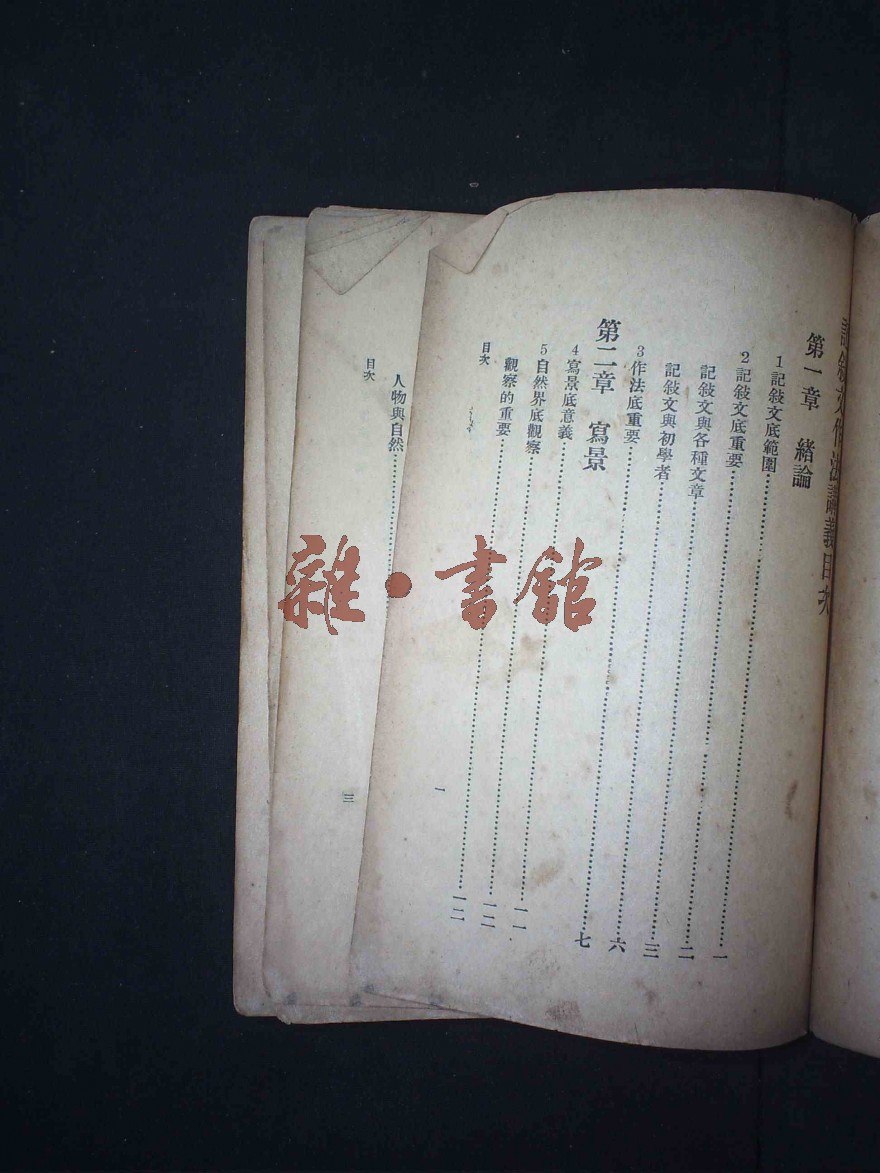 記敍文作法講義目次
第一章 緒論
1 記敍文底範圍……一
2 記敍文底重要……二
記敍文與各種文章……三
記敍文與初學者……六
3 作法底重要……七
第二章 寫景
4 寫景底意義……一一
5 自然界底觀察……一二
觀察的重要……一二
目次
一
人物與自然……
目次
三
雜·書館